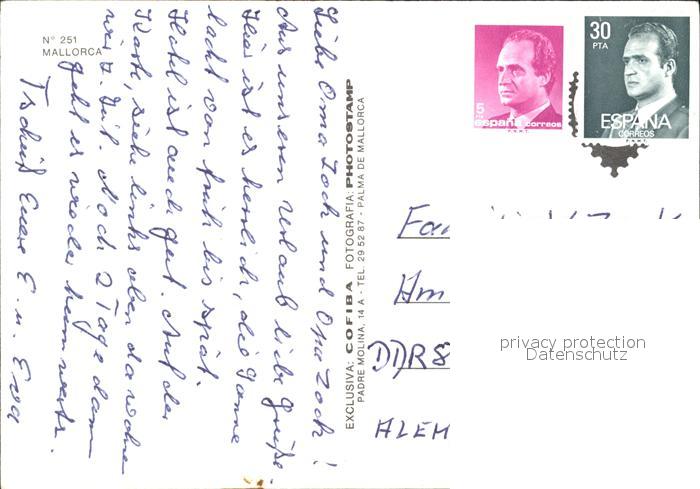 N° 251
MALLORCA
Liebe Oma Zoch und Opa Zoch!
Aus unserem Urlaub liebe Grüße.
Hier ist es herrlich, die Sonne
lacht von früh bis spät.
Hotel ist auch gut. Auf der
Karte, siehe links oben da wohnen
wir z. Zeit. Noch 2 Tage dann
geht es wieder heimwärts.
Tschüß Eure E. u. Eva
EXCLUSIVA: COFIBA FOTOGRAFIA: PHOTOSTAMP
PADRE MOLINA, 14 A - TEL. 29 52 87 - PALMA DE MALLORCA
5
PTA
españa correos
F.N.M.T.
30
PTA
ESPAÑA
CORREOS
F.N.M.T.
DDR 8
ALEM
privacy protection
Datenschutz